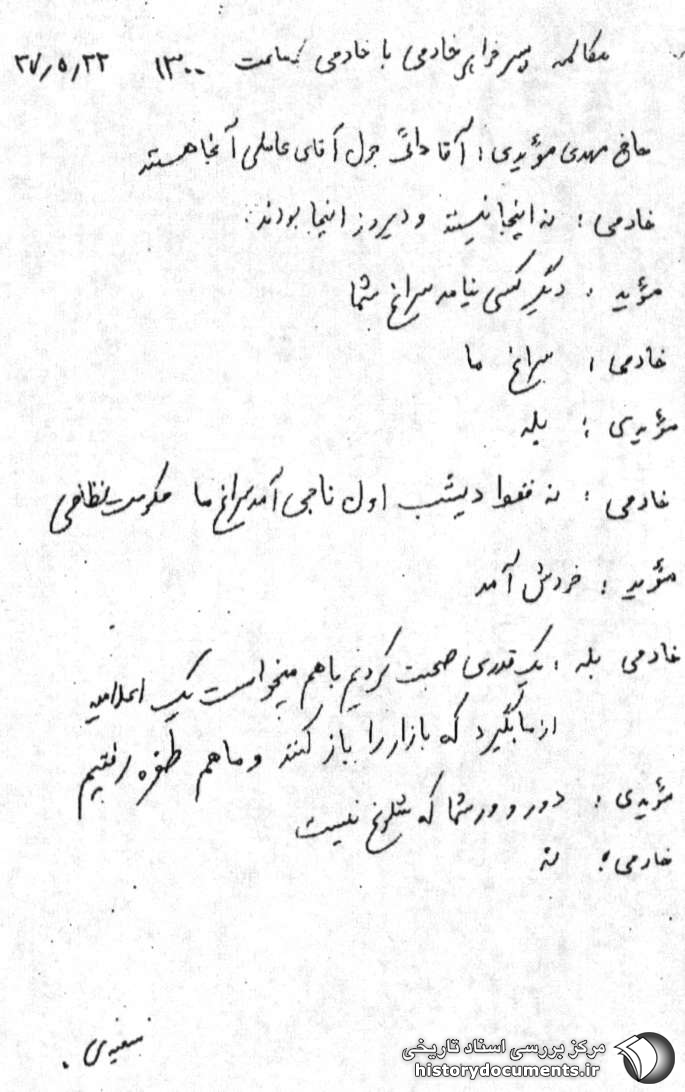 مکالمه پسر خواهر خادمی با خادمی بساعت ۱۳۰۰ ۳۷٫۵٫۲۲
حاج مهدی مؤیدی : آقا دائی جول آقای عاملی آنجا هستند
خادمی : نه اینجا نیستند و دیروز اینجا بودند.
مؤید : دیگر کسی نیامد سراغ شما
خادمی : سراغ ما
مؤیدی : بله
خادمی : نه فقط دیشب اول ناجی آمد سراغ ما حکومت نظامی
مؤید : خودش آمد
خادمی بله : یک قدری صحبت کردیم باهم میخواست یک اعلامیه
از ما بگیرد که بازار را باز کنند و ما هم طفره رفتیم
مؤیدی : دور و ور شما که شلوغ نیست
خادمی : نه
مرکز بررسی اسناد تاریخی
historydocuments.ir